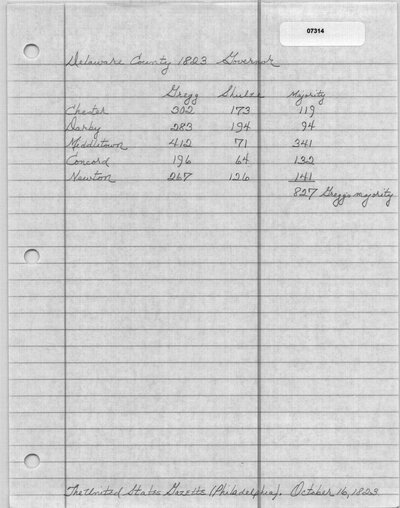 07314
Delaware County 1823 Governor
Gregg Shulze Majority
Chester 302 173 119
Darby 283 194 94
Middletown 412 71 341
Concord 196 64 132
Newton 267 126 141
827 Gregg's majority
The United States Gazette (Philadelphia). October 16, 1823